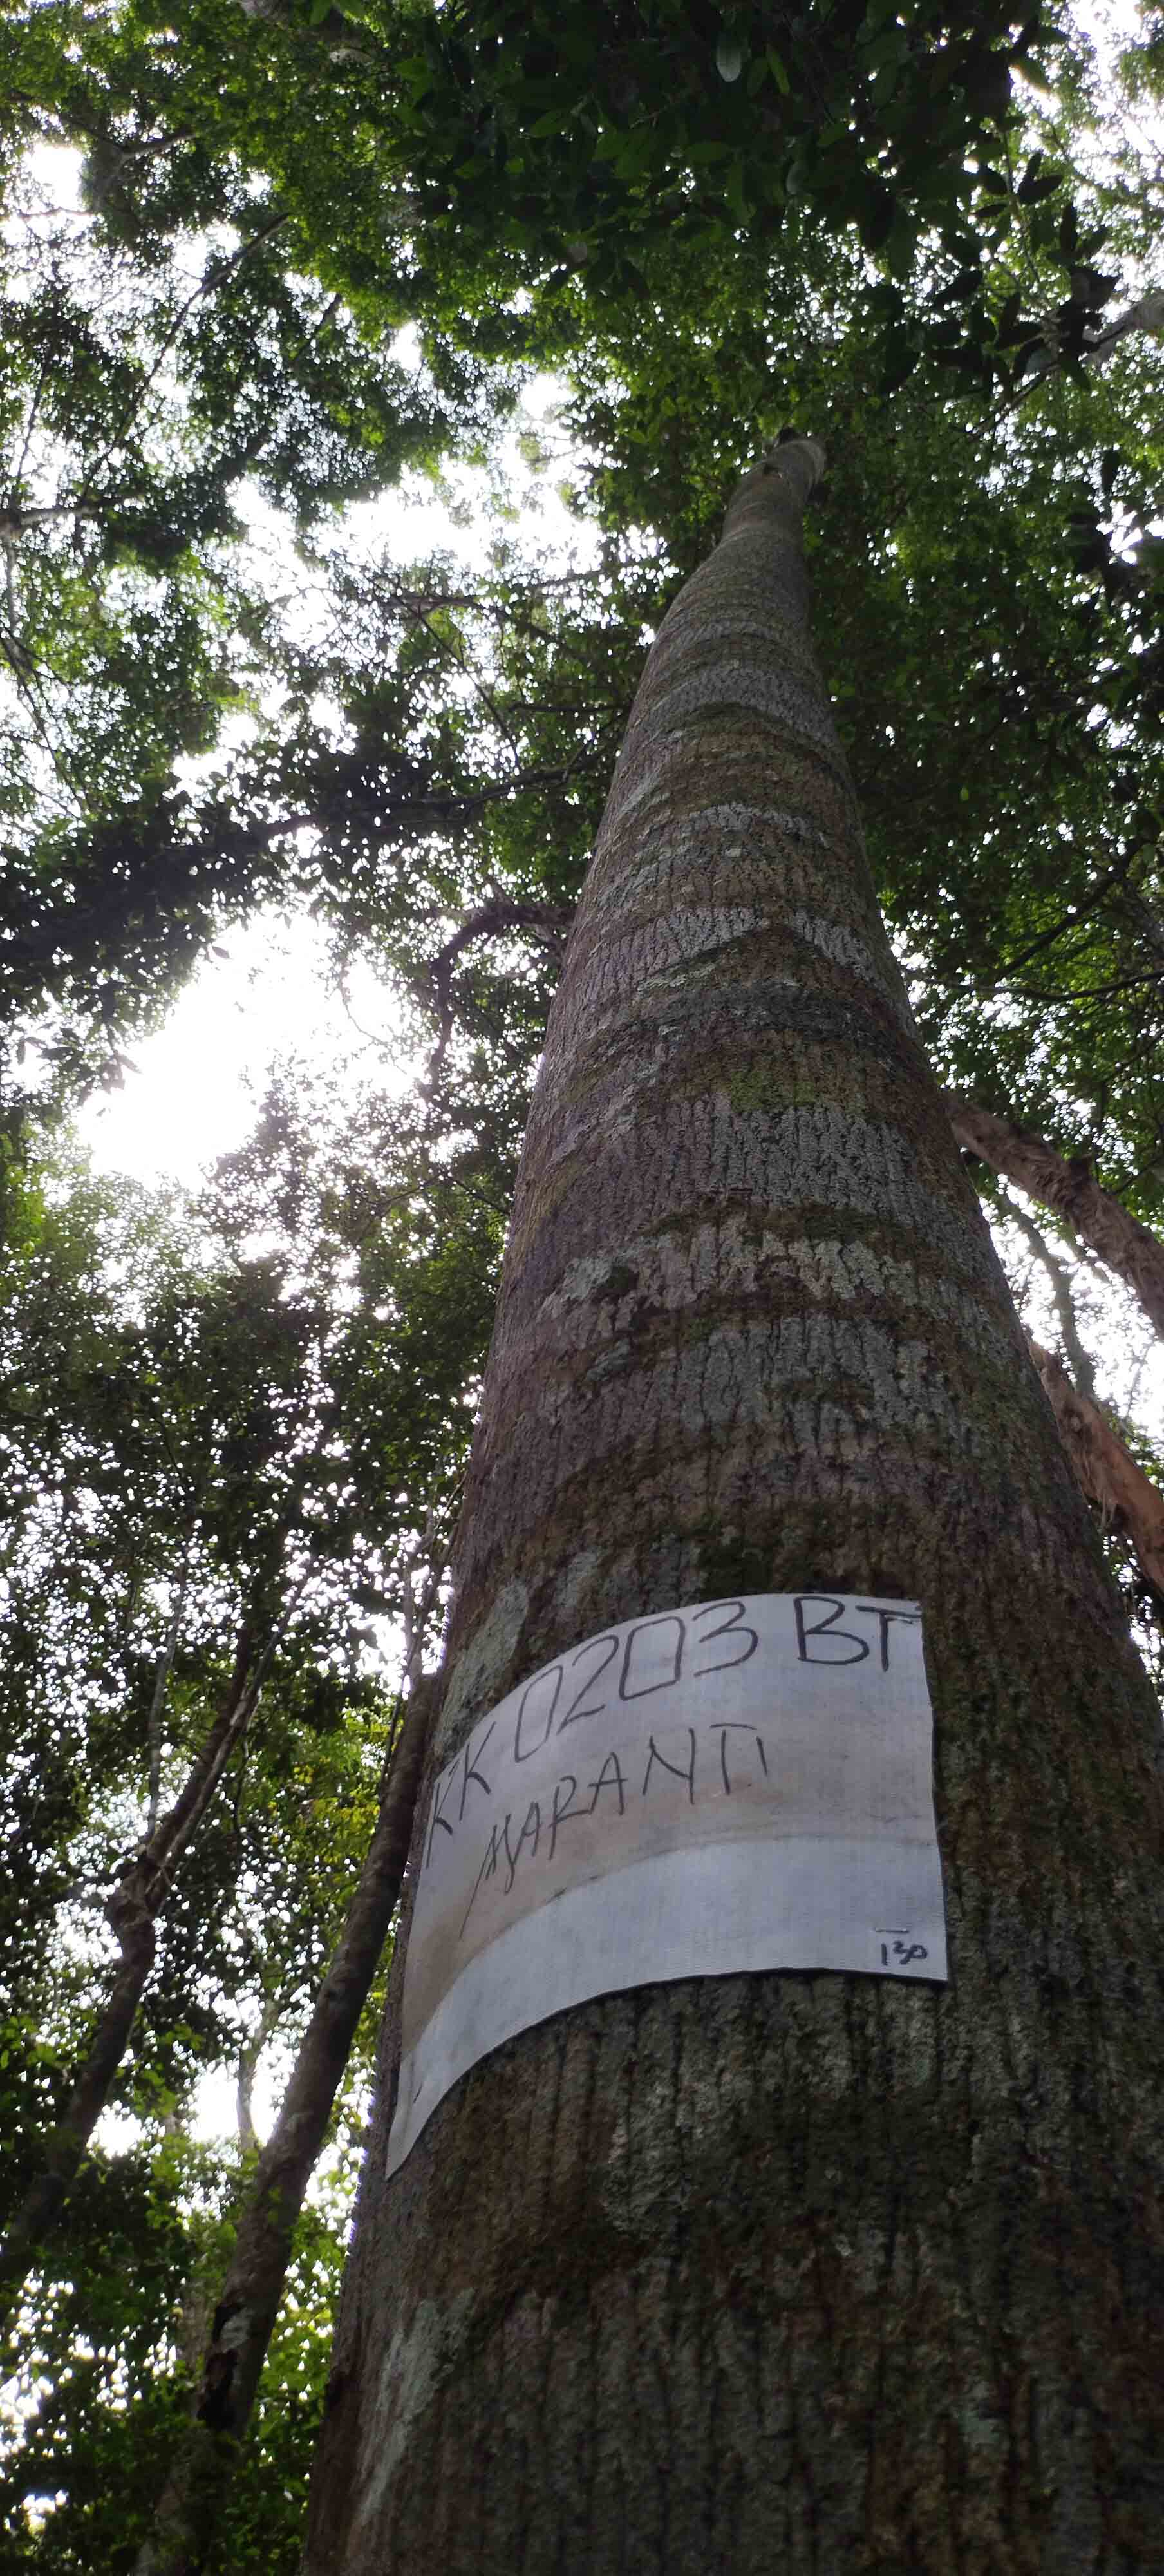 KK 0203 BT
MARANTI
130